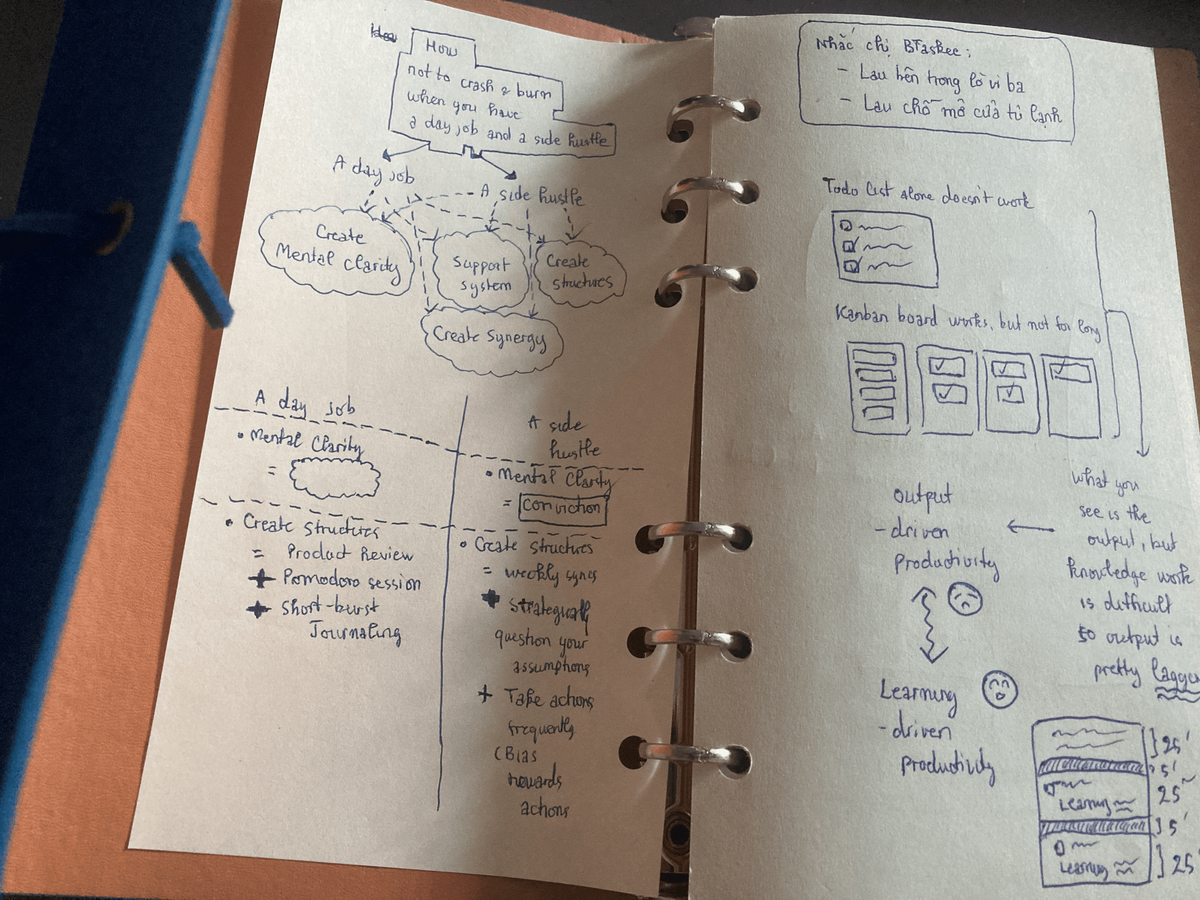 How
not to crash & burn
when you have
a day job and a side hustle
A day job
A side hustle
Create
Mental Clarity
Support
system
Create
structures
Create Synergy
A day job
• Mental Clarity
=
• Create structures
= Product Review
+ Pomodoro session
+ Short-burst
Journaling
A side
hustle
• Mental Clarity
= conviction
• Create structures
= weekly syncs
+ Strategically
question your
assumptions
+ Take actions
frequently
(Bias
towards
actions
Nhắc chị BTaskee:
- Lau bên trong lò vi ba
- Lau chỗ mở cửa tủ lạnh
Todo list alone doesn't work
Kanban board works, but not for long
what you
see is the
output, but
knowledge work
is difficult
so output is
pretty lagge
output
-driven
Productivity
Learning
-driven
productivity
25'
5'
25'
Learning
5'
25
Learning